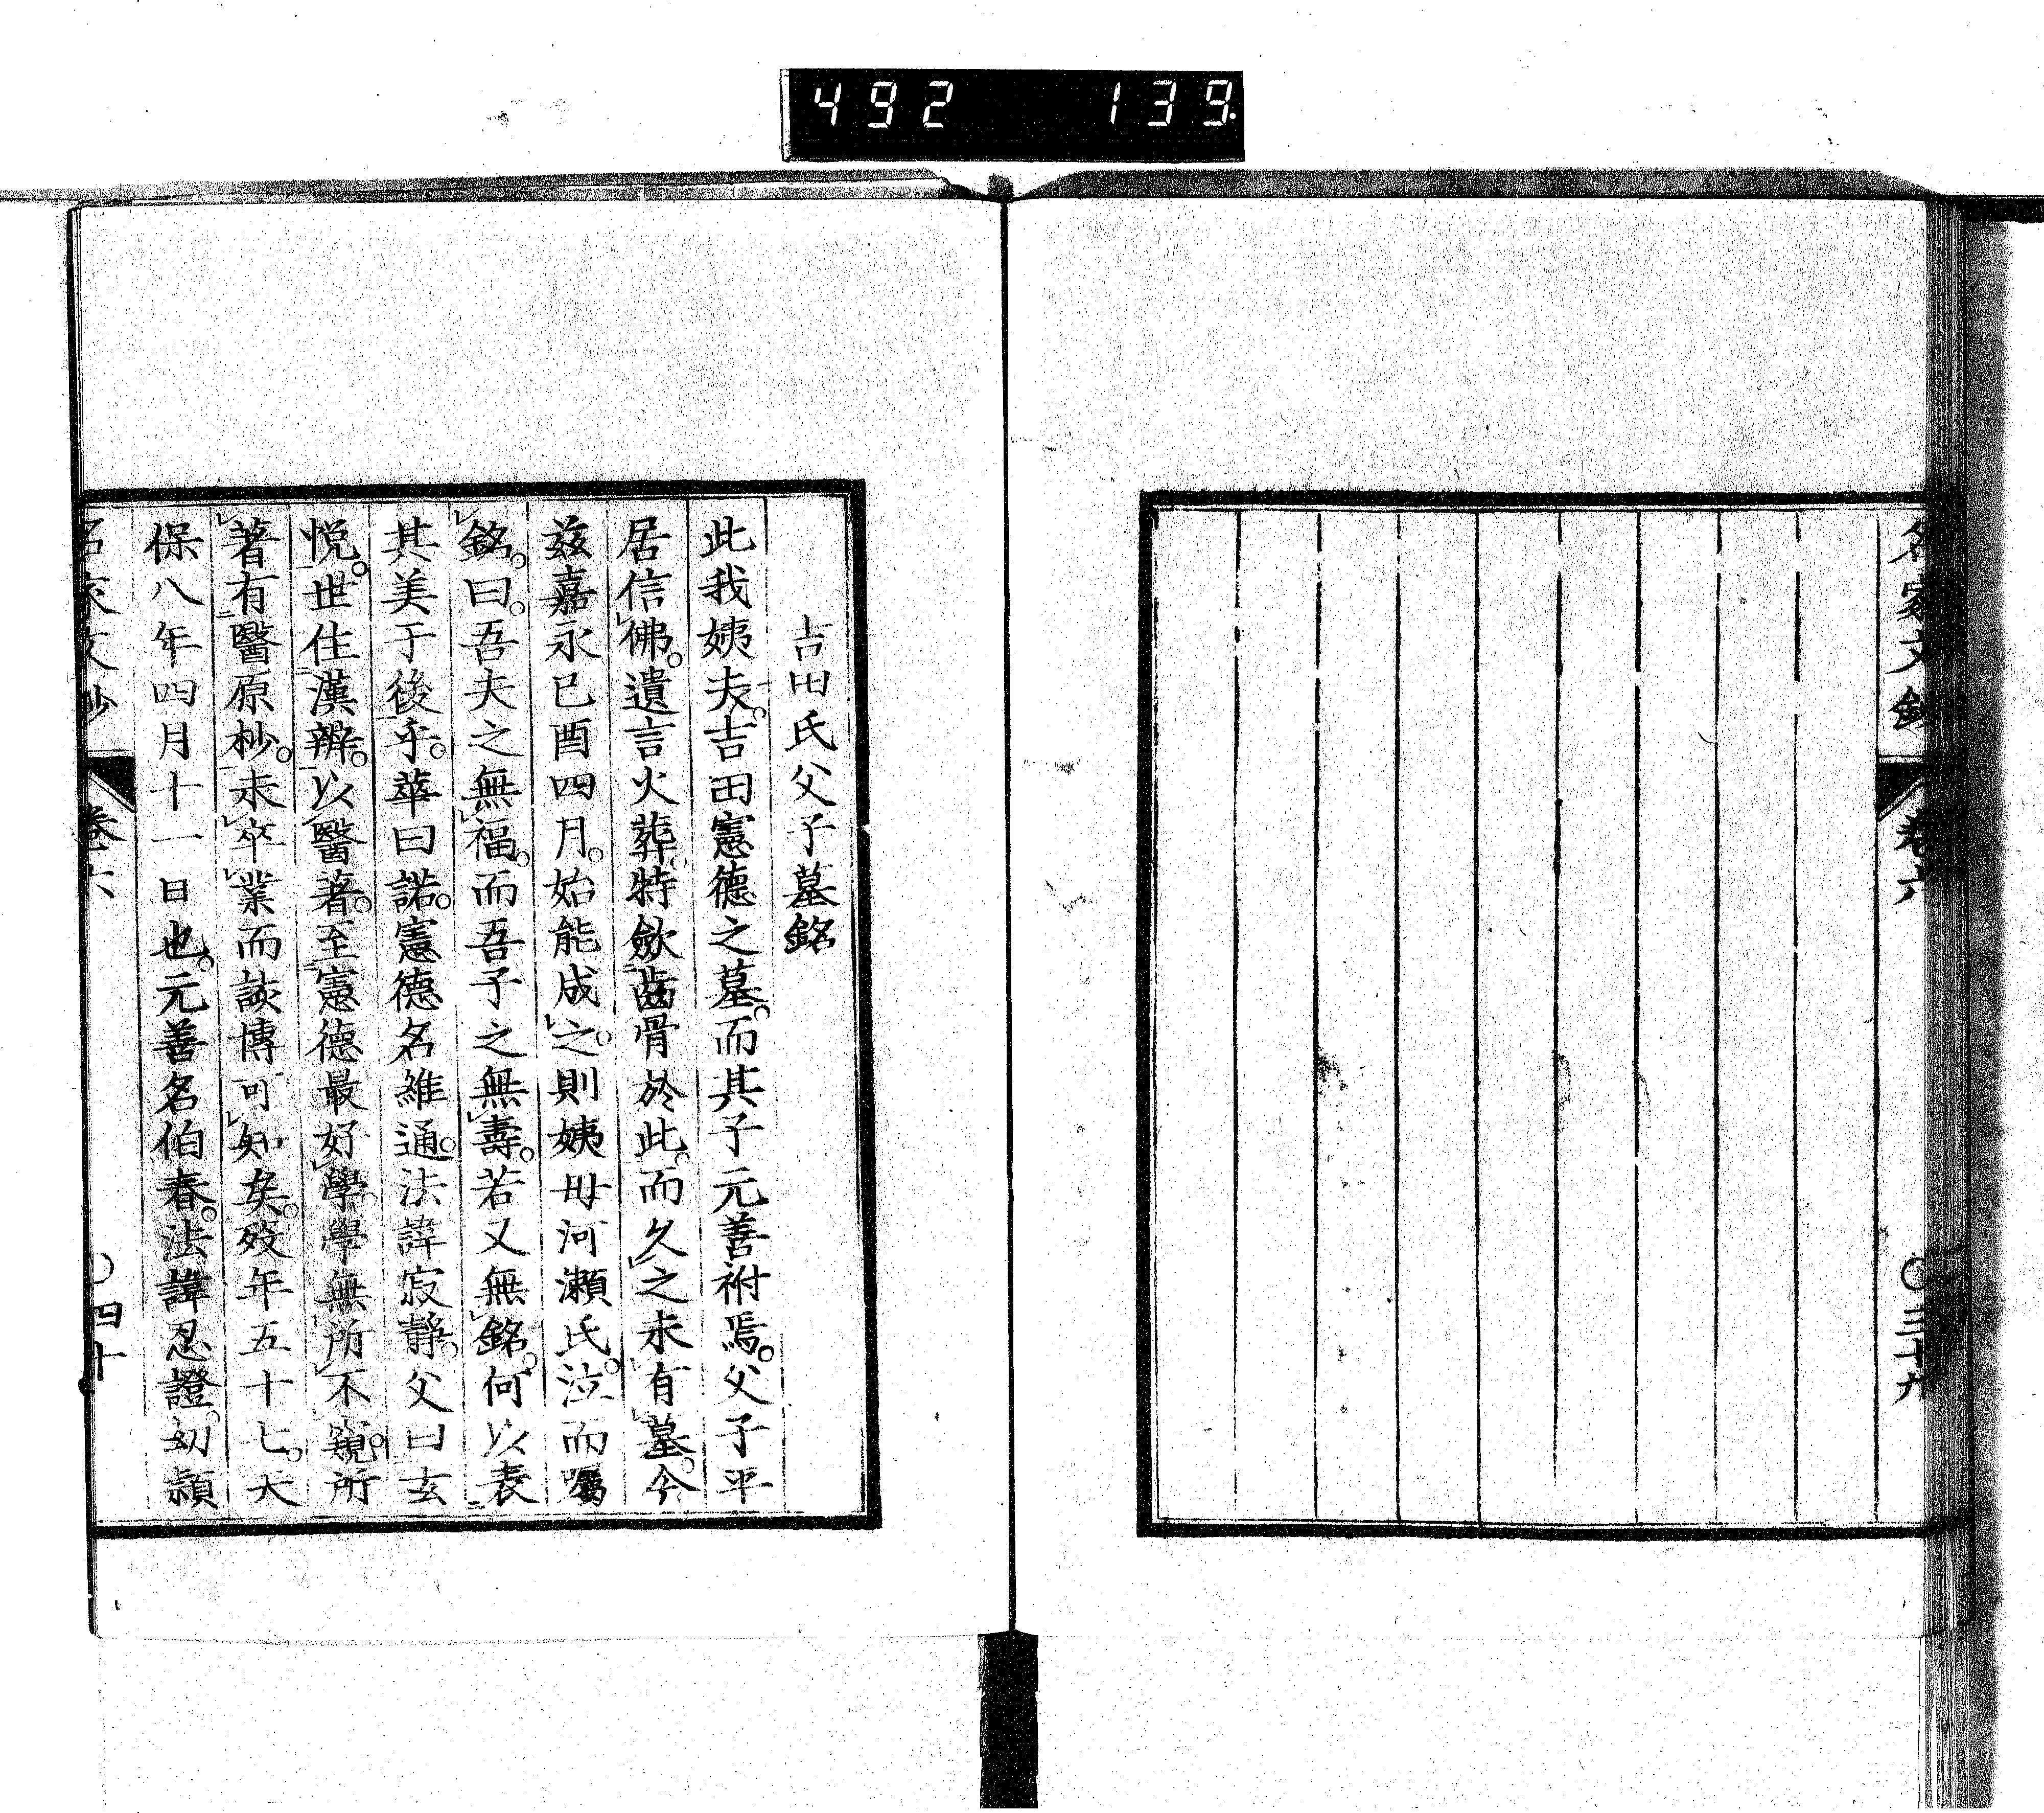 492 139
名家文鈔 卷六 〇三十九
吉田氏父子墓銘
此我姨夫。吉田憲德之墓。而其子元善祔焉。父子平
居信佛。遺言火葬。特斂齒骨於此。而久之未有墓。今
茲嘉永己酉四月。始能成之。則姨母河瀨氏。泣而囑
銘。曰。吾夫之無福。而吾子之無壽。若又無銘。何以表
其美于後乎。華曰諾。憲德名維通。法諱寂靜。父曰玄
悅。世住漢辨。以醫著。至憲德最好學。學無所不窺。所
著有醫原杪。未卒業而談博可知矣。歿年五十七。天
保八年四月十一日也。元善名伯春。法諱忍證。幼穎
名家文鈔 卷六 〇四十